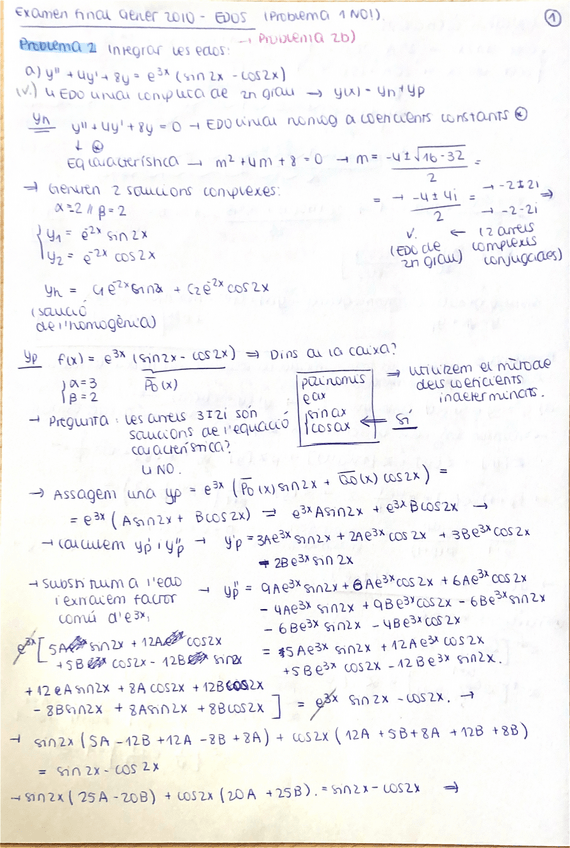 Examen final Gener 2010 - EDOS (Problema 1 NO!). ①
→ Problema 2b)
Problema 2 Integrar les edos:
a) y'' + 4y' + 8y = e^3x (sin2x - cos2x)
y(x) = yh + yp
yh y'' + 4y' + 8y = 0 → EDO lineal homog a coeficients constants
Eq característica → m² + 4m + 8 = 0 → m = (-4 ± √(16-32))/2 =
= → (-4 ± 4i)/2 = → -2+2i → -2-2i ⇒
⇒ Tenim 2 solucions complexes:
α=2 // β=2
(EDO de 2n grau) ← (2 arrels complexes conjugades)
y1 = e^-2x sin2x
y2 = e^-2x cos2x
yh = C1e^-2x sin2x + C2e^-2x cos2x
(solució
de l'homogènia)
yp f(x) = e^3x (sin2x - cos2x) ⇒ Dins de la caixa?
α=3 P0(x)
β=2
polinomis
eax
sinax
cosax ← Sí
→ utilitzem el mètode
dels coeficients
indeterminats.
→ Pregunta: les arrels 3±2i són
solucions de l'equació
característica?
↳ NO.
→ Assagem una yp = e^3x (P0(x) sin2x + Q0(x) cos2x) =
= e^3x (Asin2x + Bcos2x) = e^3x Asin2x + e^3x Bcos2x →
→ Calculem yp' i yp'' → yp' = 3Ae^3x sin2x + 2Ae^3x cos2x + 3Be^3x cos2x
- 2Be^3x sin2x
→ Substituim a l'edo
i extraiem factor
comú d'e^3x:
→ yp'' = 9Ae^3x sin2x + 6Ae^3x cos2x + 6Ae^3x cos2x
- 4Ae^3x sin2x + 9Be^3x cos2x - 6Be^3x sin2x
- 6Be^3x sin2x - 4Be^3x cos2x
= 5Ae^3x sin2x + 12Ae^3x cos2x
+ 5Be^3x cos2x - 12Be^3x sin2x.
e^3x [5A sin2x + 12A cos2x
+ 5B cos2x - 12B sin2x
+ 12Asin2x + 8A cos2x + 12B cos2x
- 8Bsin2x + 8Asin2x + 8Bcos2x] = e^3x sin2x - cos2x. →
→ sin2x (5A - 12B + 12A - 8B + 8A) + cos2x (12A + 5B + 8A + 12B + 8B)
= sin2x - cos2x
→ sin2x (25A - 20B) + cos2x (20A + 25B). = sin2x - cos2x ⇒